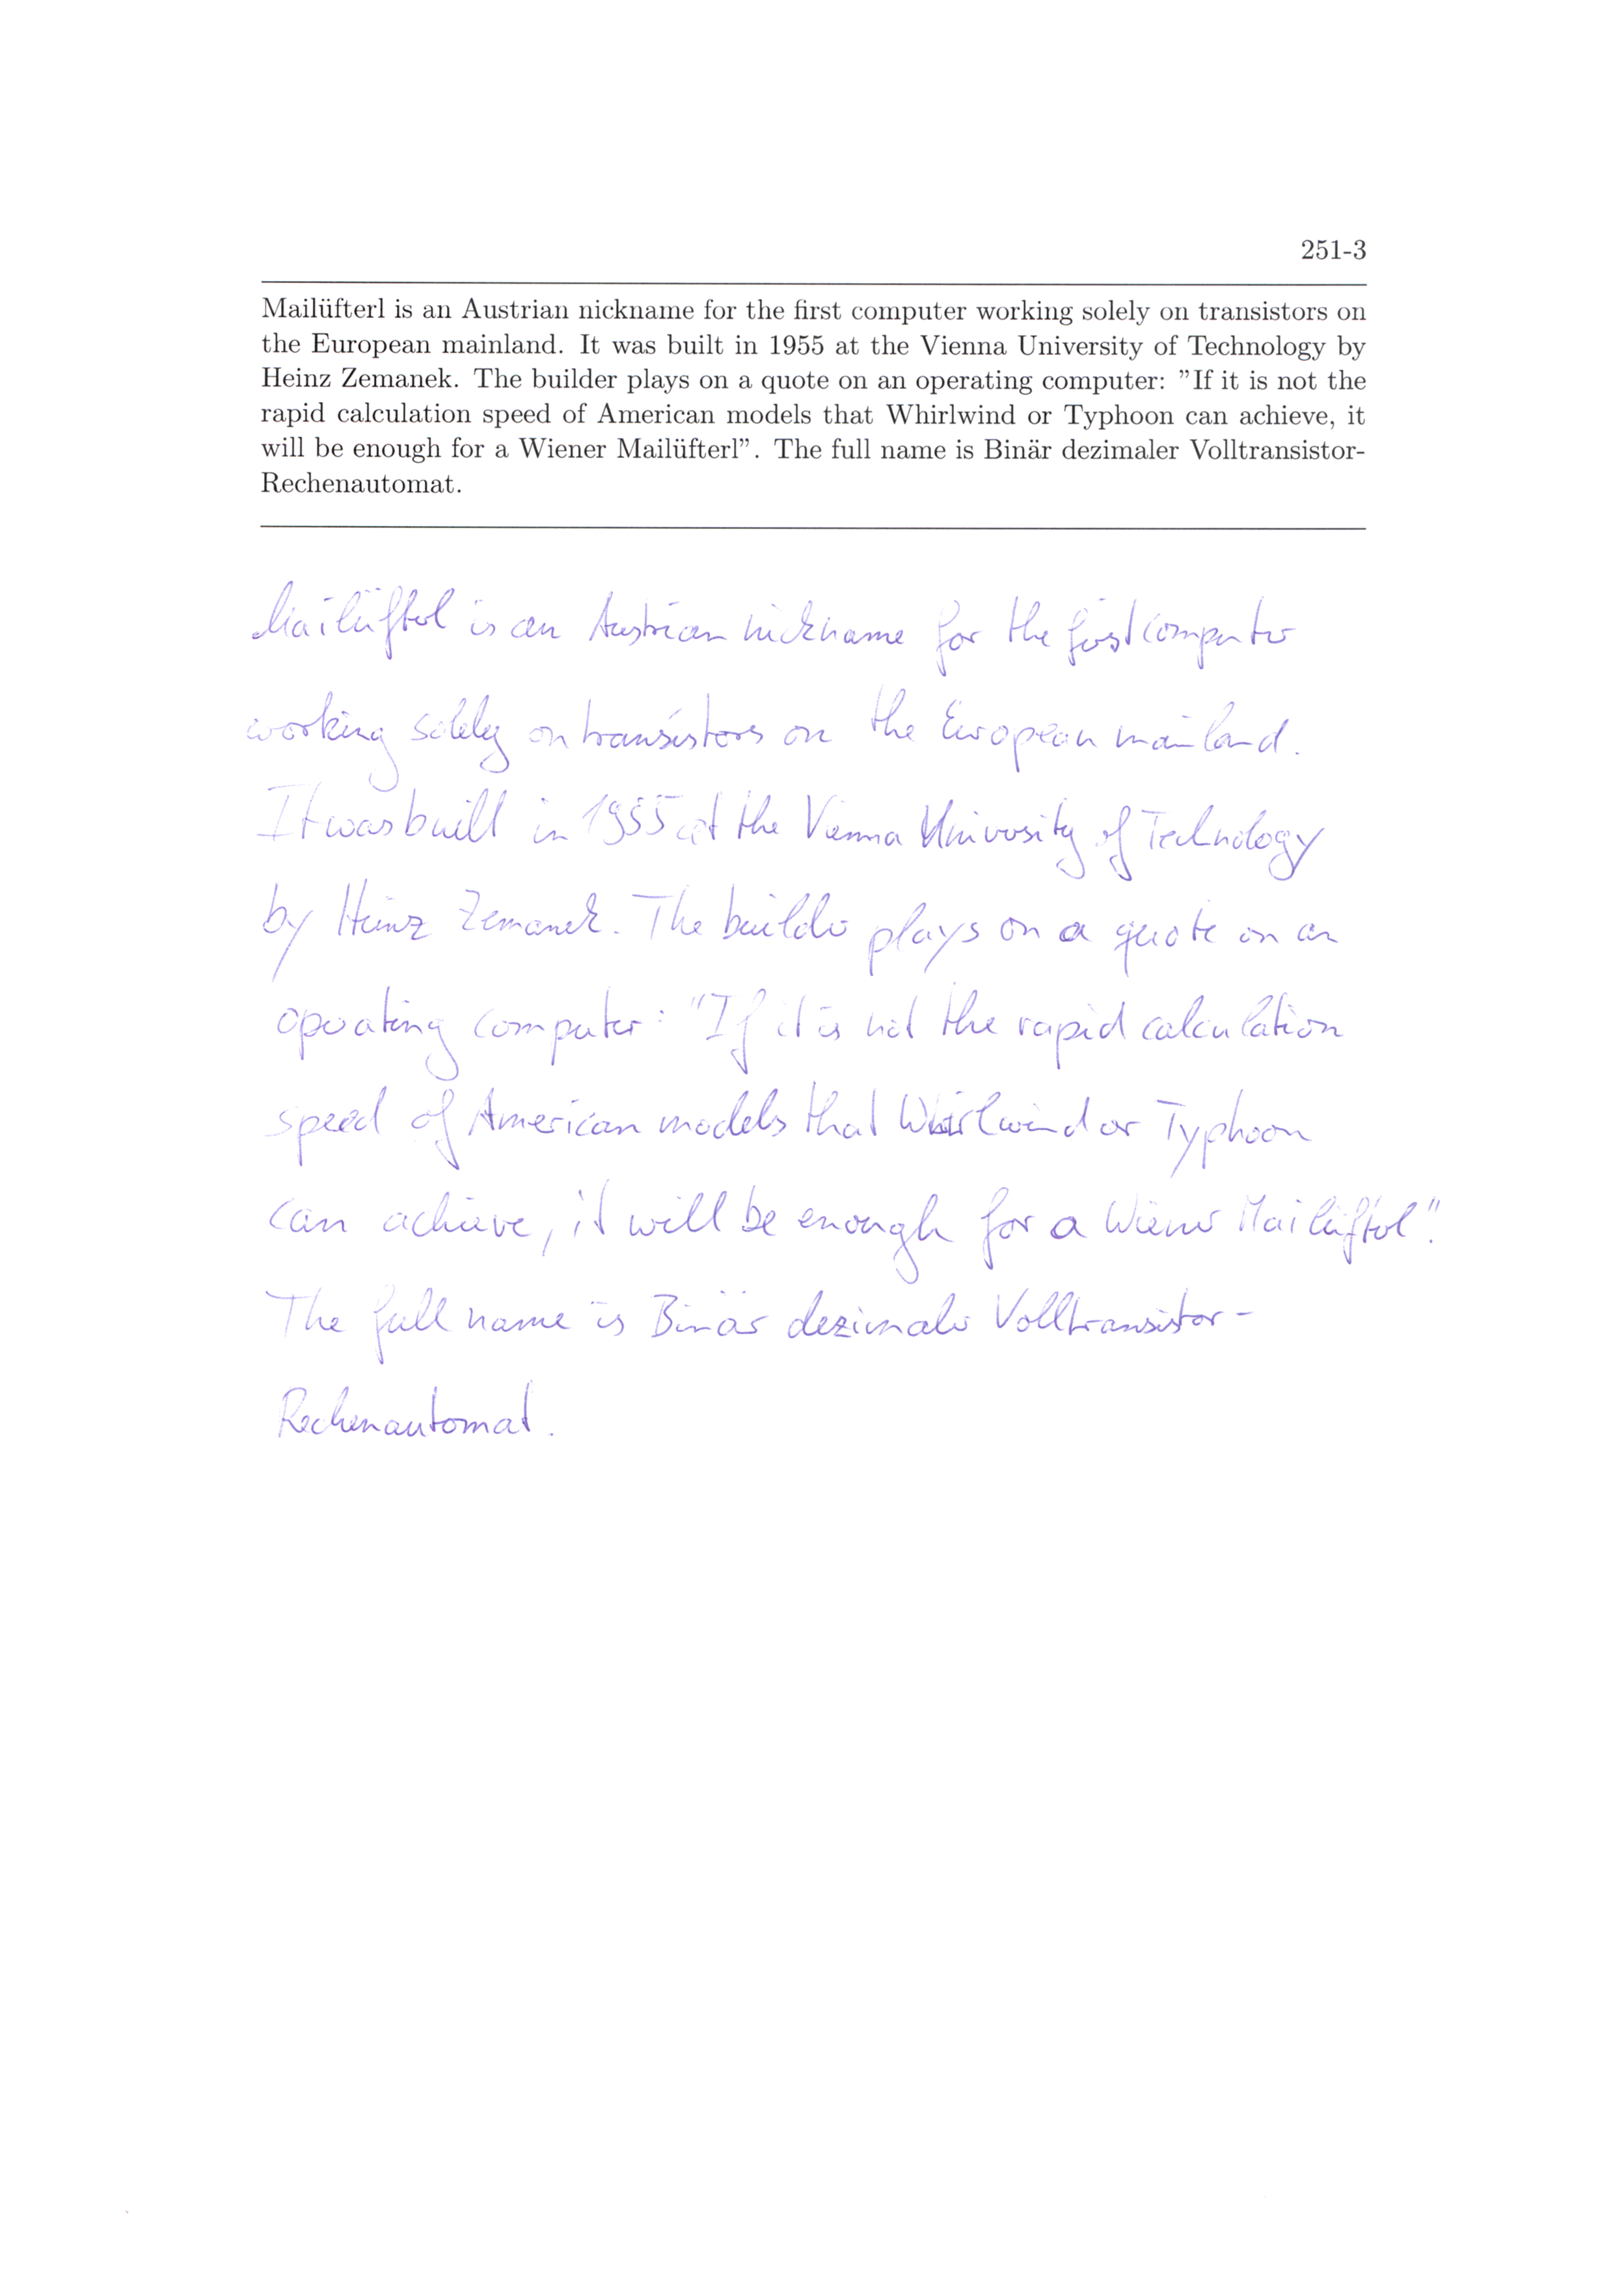 251-3
Mailüfterl is an Austrian nickname for the first computer working solely on transistors on
the European mainland. It was built in 1955 at the Vienna University of Technology by
Heinz Zemanek. The builder plays on a quote on an operating computer: ”If it is not the
rapid calculation speed of American models that Whirlwind or Typhoon can achieve, it
will be enough for a Wiener Mailüfterl”. The full name is Binär dezimaler Volltransistor-
Rechenautomat.
Mailüfterl is an Austrian nickname for the first computer
working solely on transistors on the European mainland.
It was built in 1955 at the Vienna University of Technology
by Heinz Zemanek. The builder plays on a quote on an
operating computer: "If it is not the rapid calculation
speed of American models that Whirlwind or Typhoon
can achieve, it will be enough for a Wiener Mailüfterl".
The full name is Binär dezimaler Volltransistor-
Rechenautomat.